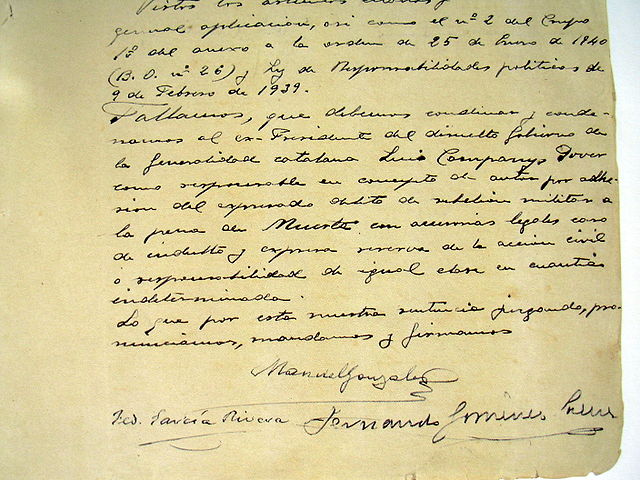 Vistos los artículos citados y
general aplicación, así como el nº 2 del Grupo
1º del anexo a la orden de 25 de Enero de 1940
(B.O. nº 26) y Ley de Responsabilidades políticas de
9 de Febrero de 1939.
Fallamos, que debemos condenar y conde-
namos al ex-Presidente del disuelto Gobierno de
la Generalidad catalana Luis Companys Jover
como responsable en concepto de autor por adhe-
sion del expresado delito de rebelión militar a
la pena de Muerte con accesorias legales caso
de indulto y expresa reserva de la acción civil
o responsabilidad de igual clase en cuantía
indeterminada.
Lo que por esta nuestra sentencia juzgando, pro-
nunciamos, mandamos y firmamos
Manuel Gonzalez
Fed. García Rivera Fernando Giménez